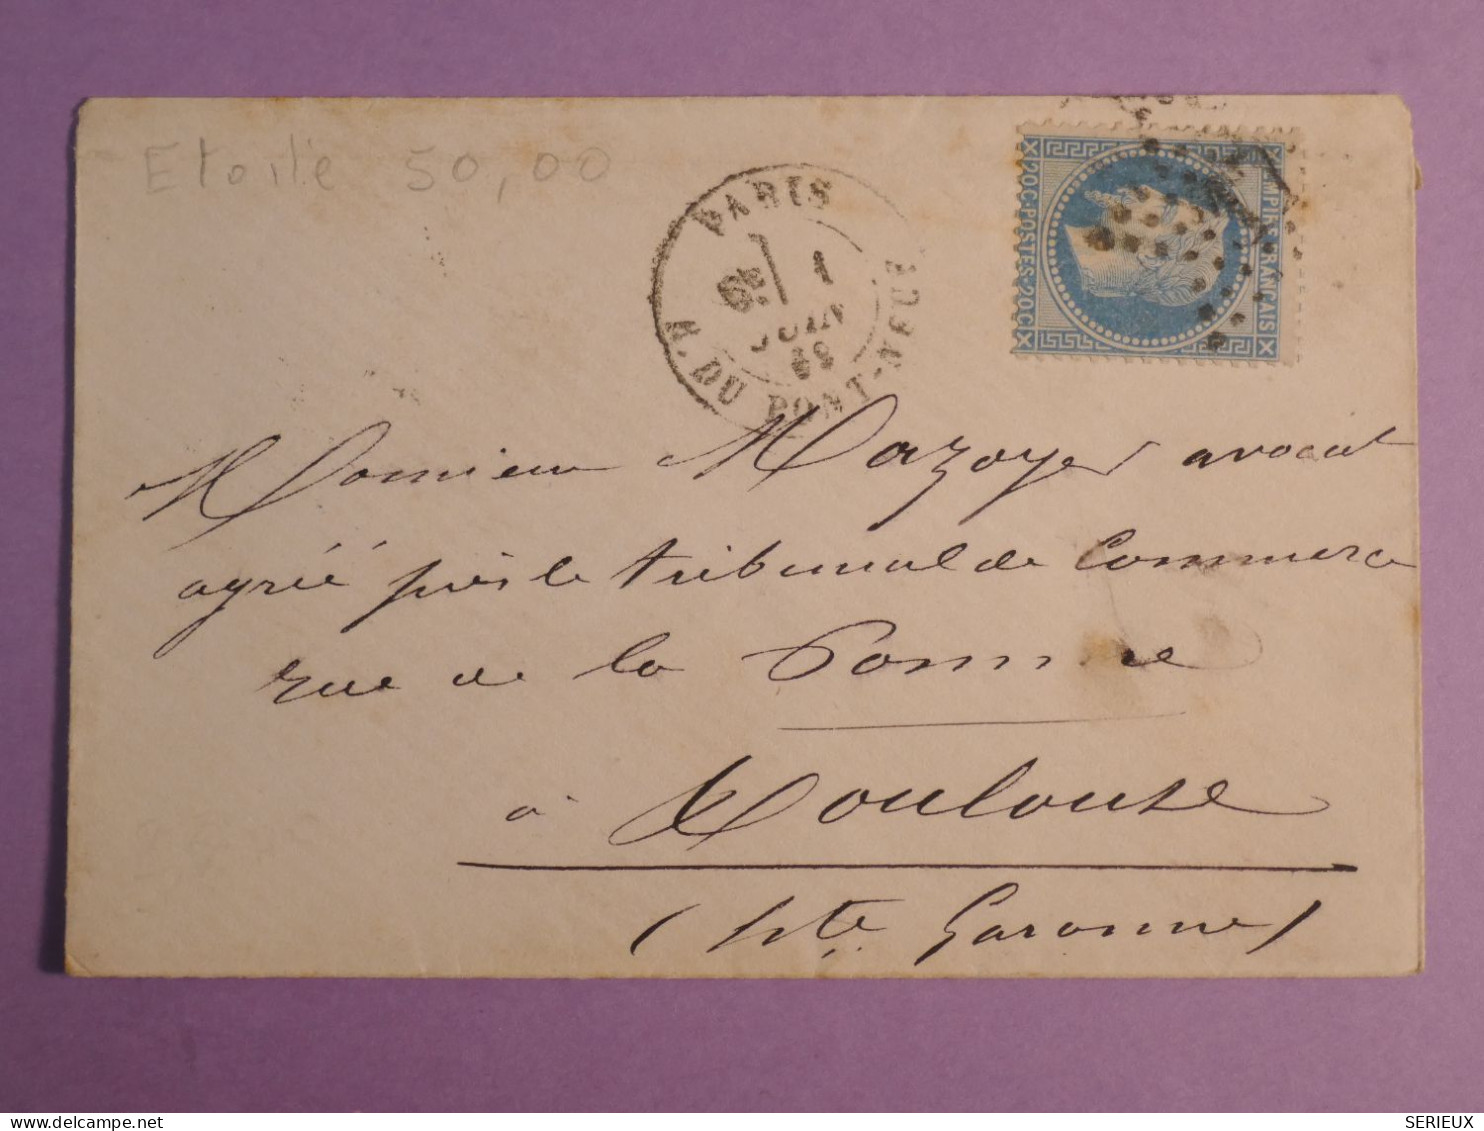 Etoile 50,00
PARIS
R. DU PONT-NEUF
1
JUIN
69
EMPIRE FRANÇAIS
20C·POSTES·20C
Monsieur Mazoyer avocat
agréé près le tribunal de Commerce
rue de la Pomme
à Toulouse
(hte. Garonne)
SERIEUX